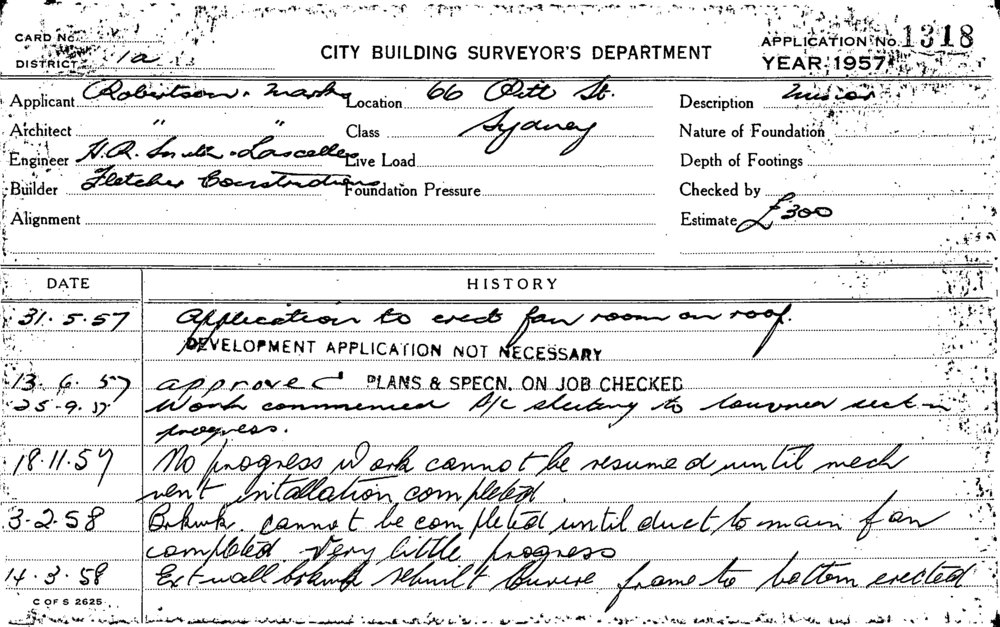 CARD No.
CITY BUILDING SURVEYOR'S DEPARTMENT
APPLICATION No. 1318
DISTRICT 1a
YEAR, 1957
Applicant Robertson & Marks Location 66 Pitt St. Description Misc
Architect " " Class Sydney Nature of Foundation
Engineer H.R. Smith - Lascelles Live Load Depth of Footings
Builder Fletcher Constructions Foundation Pressure Checked by
Alignment Estimate £300
DATE HISTORY
31.5.57 Application to erect fan room on roof.
DEVELOPMENT APPLICATION NOT NECESSARY
13.6.57 approved PLANS & SPECN. ON JOB CHECKED
25.9.57 Work commenced A/C sheeting to in
progress.
18.11.57 No progress Work cannot be resumed until mech
vent intallation completed.
3.2.58 Brkwk. cannot be completed until duct to main fan
completed Very little progress
14.3.58 Ext wall brkwk rebuilt louvre frame to bottom erected
C OF S 2625